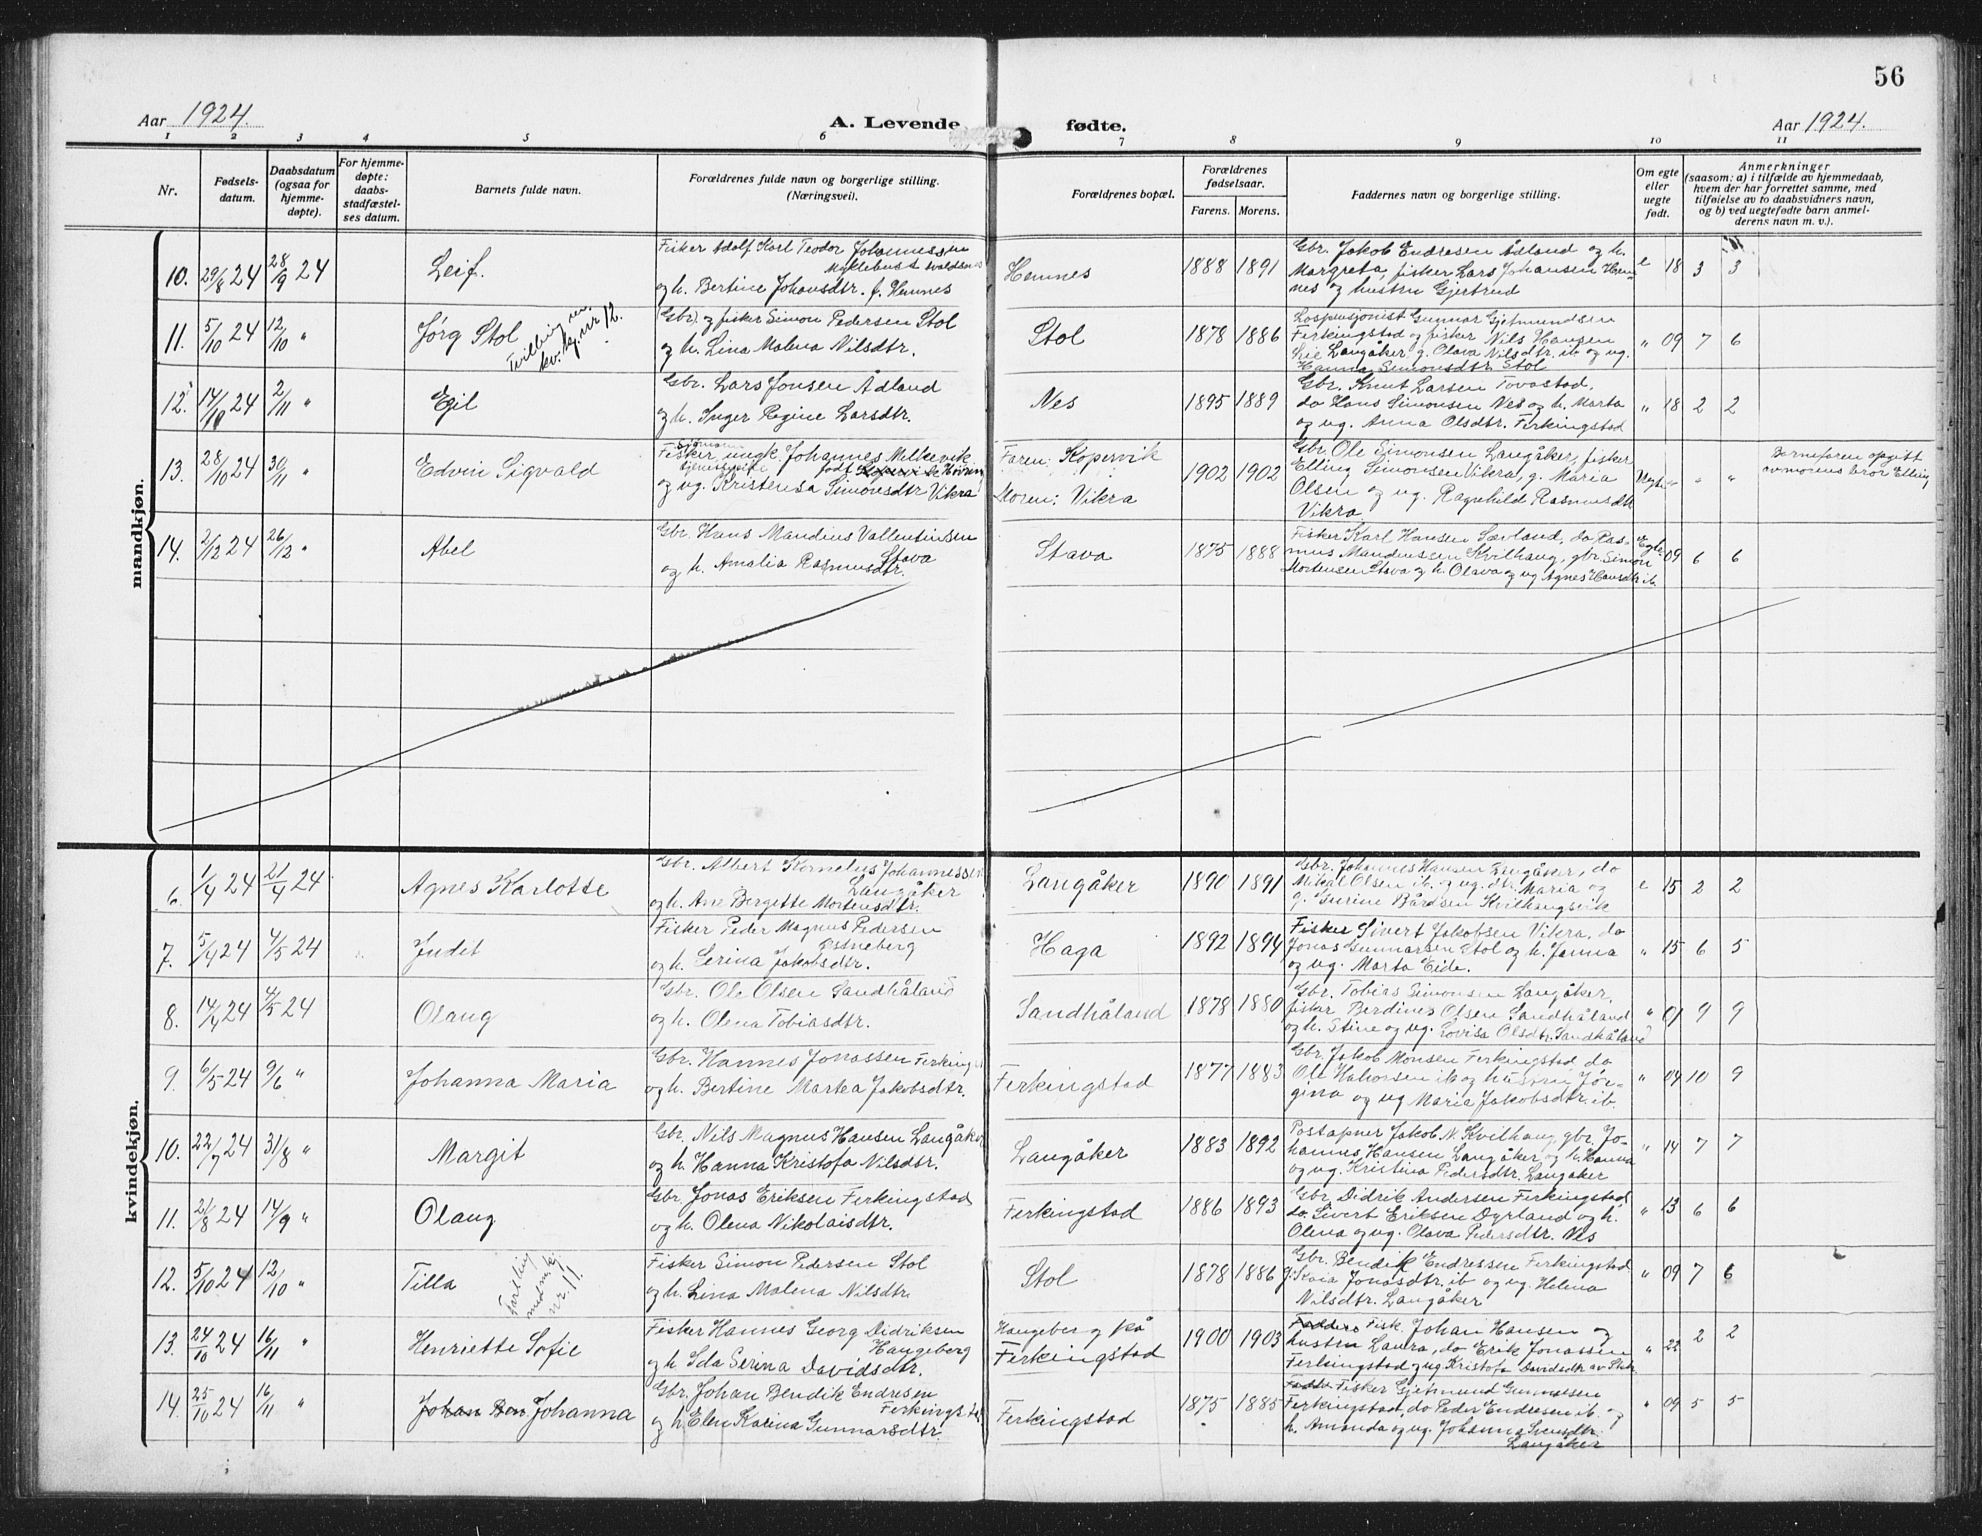 56
Aar 1924.
A. Levende fødte.
Aar 1924.
1 2 3 4 5 6 7 8 9 10 11
Nr.
Fødsels-
datum.
Daabsdatum
(ogsaa for
hjemme-
døpte).
For hjemme-
døpte:
daabs-
stadfæstel-
ses datum.
Barnets fulde navn.
Forældrenes fulde navn og borgerlige stilling.
(Næringsvei).
Forældrenes bopæl.
Forældrenes
fødselsaar.
Farens. Morens.
Faddernes navn og borgerlige stilling.
Om egte
eller
uegte
født.
Anmerkninger
(saasom: a) i tilfælde av hjemmedaab,
hvem der har forrettet samme, med
tilføielse av to daabsvidners navn,
og b) ved uegtefødte barn anmel-
derens navn m. v.).
mandkjøn.
10. 29/8 24 28/9 24 Leif.
Fisker Adolf Karl Teodor Johannessen
Myklebust
og h. Bertine Johansdtr. f. Hemnes
Hemnes 1888 1891
Gbr. Jakob Endresen Ådland og h.
Margreta, fisker Lars Johansen Hem-
nes og hustru Gjertrud
e 18 3 3
11. 5/10 24 12/10 " Jørg Stol
Tvilling m.
kv. kj. nr 12.
(Gbr) og fisker Simon Pedersen Stol
og h. Lina Malena Nilsdtr.
Stol 1878 1886
Gunnar Gjetmundsen
Ferkingstad og fisker Nils Hansen
Lie Langåker, g. Olava Nilsdtr. ib og ug.
Hanna Simonsdtr Stol
" 09 7 6
12. 14/10 24 2/11 " Egil
Gbr. Lars Jonsen Ådland
og h. Inger Regine Larsdtr.
Nes 1895 1889
Gbr. Knut Larsen Tovastad,
do Hans Simonsen Nes og h. Marta
og ug. Anna Olsdtr. Ferkingstad
" 18 2 2
13. 28/10 24 30/11 " Edvin Sigvald
Fisker ungk. Johannes Melkevik
og ug. Kristensa Simonsdtr Vikra
Faren: Kopervik
Moren: Vikra
1902 1902
Gbr. Ole Simonsen Langåker, fisker
Elling Simonsen Vikra, g. Maria
Olsen og ug. Ragnhild Rasmusdtr
Vikra
Uegte " " "
Barnefaren opgitt
av morens bror Elling
14. 2/12 24 26/12 " Abel
Gbr. Hans Mandius Vallentinsen
Stava
og h. Amalia Rasmusdtr.
Stava 1875 1888
Fisker Karl Hansen Sævland, do Ras-
mus Mandiussen Kvilhaug, gbr. Simon
Mortensen Stava og h. Olava og ug Agnes Hansdtr ib.
Egte 09 6 6
kvindekjøn.
6. 1/4 24 21/4 24 Agnes Karlotte
Gbr. Albert Kornelius Johannessen
Langåker
og h. Ane Bergette Mortensdtr.
Langåker 1890 1891
Gbr. Johannes Hansen Langåker, do
Mikal Olsen ib. og ug. dtr. Maria og
g. Gurine Bårdsen Kvilhaugsvik
e 15 2 2
7. 5/4 24 4/5 24 Judit
Fisker Peder Magnus Pedersen
Østneberg
og h. Serina Jakobsdtr.
Haga 1892 1894
Fisker Sivert Jakobsen Vikra, do
Jonas Gunnarsen Stol og h. Janna
og ug. Marta Eide.
" 15 6 5
8. 14/4 24 4/5 24 Olaug
Gbr. Ole Olsen Sandhåland
og h. Olena Tobiasdtr.
Sandhåland 1878 1880
Gbr. Tobias Simonsen Langåker,
fisker Berdines Olsen Sandhåland
og h. Stine og ug. Lovisa Olsdtr. Sandhåland
" 01 9 9
9. 6/5 24 9/6 " Johanna Maria
Gbr. Hannes Jonassen Ferking
og h. Bertine Martea Jakobsdtr.
Ferkingstad 1877 1883
Gbr. Jakob Monsen Ferkingstad, do
Ole Håkonsen ib og hustru Jør-
gina og ug Maria Jakobsdtr. ib.
" 04 10 9
10. 22/7 24 31/8 " Margit
Gbr. Nils Magnus Hansen Langåker
og h. Hanna Kristofa Nilsdtr.
Langåker 1883 1892
Postapner Jakob N. Kvilhaug, gbr. Jo-
hannes Hansen Langåker og h. Hanna
og ug. Kristina Pedersdtr. Langåker
" 14 7 7
11. 21/8 24 14/9 " Olaug
Gbr. Jonas Eriksen Ferkingstad
og h. Olena Nikolaisdtr.
Ferkingstad 1886 1893
Gbr. Didrik Andersen Ferkingstad
do. Sivert Eriksen Dyrland og h.
Olena og ug. Olava Pedersdtr. Nes
" 13 6 6
12. 5/10 24 12/10 " Tilla
Tvilling
med m. kj.
nr. 11.
Fisker Simon Pedersen Stol
og h. Lina Malena Nilsdtr.
Stol 1878 1886
Gbr. Bendik Endressen Ferkingstad
g. Kaia Jonasdtr. ib og ug. Helena
Nilsdtr. Langåker
" 09 7 6
13. 24/10 24 16/11 " Henriette Sofie
Fisker Hannes Georg Didriksen
Haugeberg
og h Ida Serina Davidsdtr.
Haugeberg på
Ferkingstad
1900 1903
Fisk. Johan Hansen og
hustru Laura, do Erik Jonassen
Ferkingstad og ug. Kristofa Davidsdtr av
" 22 2 2
14. 25/10 24 16/11 " Johan Ben Johanna
Gbr. Johan Bendik Endresen
Ferkingstad
og h. Elen Karina Gunnarsdtr.
Ferkingstad 1875 1885
Fisker Gjetmund Gunnarsen
Ferkingstad, do Peder Endresen ib. og
h. Amanda og ug. Johanna Svensdtr.
Langåker
" 09 5 5